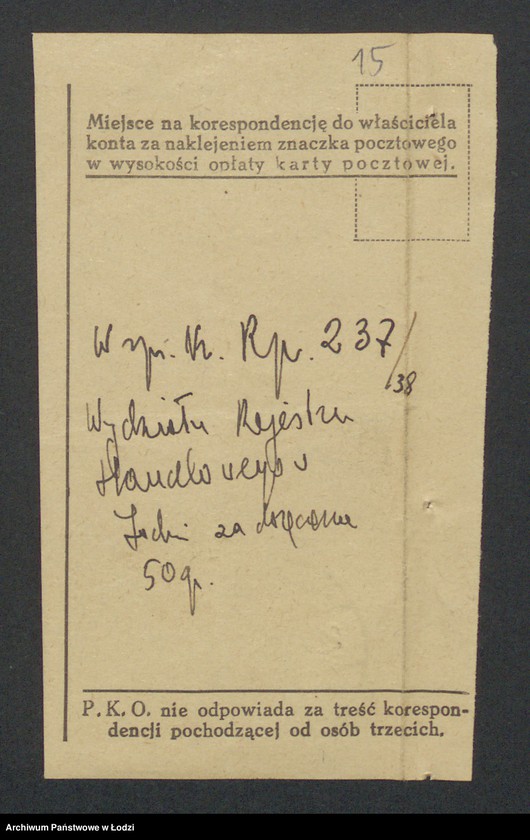 15
Miejsce na korespondencję do właściciela
konta za naklejeniem znaczka pocztowego
w wysokości opłaty karty pocztowej.
W spr. Nr. Rp. 237/38
Wydziału Rejestru
Handlowego w
Łodzi za doręczenie
50 gr.
P. K. O. nie odpowiada za treść korespon-
dencji pochodzącej od osób trzecich.
Archiwum Państwowe w Łodzi